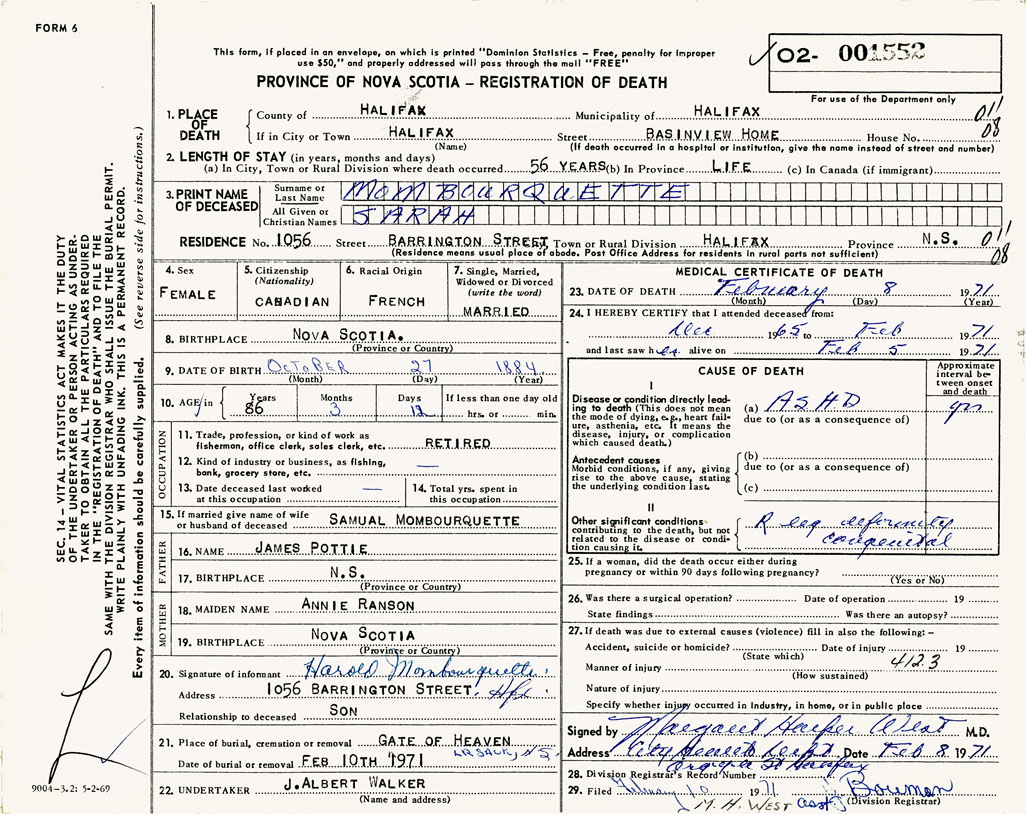 FORM 6
This form, if placed in an envelope, on which is printed "Dominion Statistics – Free, penalty for improper
use $50," and properly addressed will pass through the mail "FREE"
02- 001552
PROVINCE OF NOVA SCOTIA – REGISTRATION OF DEATH
For use of the Department only
1. PLACE OF DEATH County of HALIFAX Municipality of HALIFAX 011
If in City or Town HALIFAX Street BASINVIEW HOME House No. 08
(Name) (If death occurred in a hospital or institution, give the name instead of street and number)
2. LENGTH OF STAY (in years, months and days)
(a) In City, Town or Rural Division where death occurred 56 YEARS (b) In Province LIFE (c) In Canada (if immigrant)
3. PRINT NAME OF DECEASED Surname or Last Name MOMBOURQUETTE
All Given or Christian Names SARAH
RESIDENCE No. 1056 Street BARRINGTON STREET Town or Rural Division HALIFAX Province N.S. 011
(Residence means usual place of abode. Post Office Address for residents in rural parts not sufficient) 08
4. Sex FEMALE
5. Citizenship (Nationality) CANADIAN
6. Racial Origin FRENCH
7. Single, Married, Widowed or Divorced (write the word) MARRIED
8. BIRTHPLACE NOVA SCOTIA.
(Province or Country)
9. DATE OF BIRTH OCTOBER 27 1884
(Month) (Day) (Year)
10. AGE in Years Months Days If less than one day old
86 3 12 hrs. or min.
OCCUPATION
11. Trade, profession, or kind of work as
fisherman, office clerk, sales clerk, etc. RETIRED
12. Kind of industry or business, as fishing,
bank, grocery store, etc. —
13. Date deceased last worked
at this occupation —
14. Total yrs. spent in
this occupation
15. If married give name of wife
or husband of deceased SAMUAL MOMBOURQUETTE
FATHER
16. NAME JAMES POTTIE
17. BIRTHPLACE N.S.
(Province or Country)
MOTHER
18. MAIDEN NAME ANNIE RANSON
19. BIRTHPLACE NOVA SCOTIA
(Province or Country)
20. Signature of informant Harold Mombourquette
Address 1056 BARRINGTON STREET, Hfx.
Relationship to deceased SON
21. Place of burial, cremation or removal GATE OF HEAVEN
Date of burial or removal FEB 10TH 1971
22. UNDERTAKER J. ALBERT WALKER
(Name and address)
MEDICAL CERTIFICATE OF DEATH
23. DATE OF DEATH February 8 1971
(Month) (Day) (Year)
24. I HEREBY CERTIFY that I attended deceased from:
Dec 1965 to Feb 1971
and last saw her alive on Feb 5 1971
CAUSE OF DEATH
Approximate interval between onset and death
I
Disease or condition directly leading to death (This does not mean the mode of dying, e.g., heart failure, asthenia, etc. It means the disease, injury, or complication which caused death.)
(a) ASHD yrs
due to (or as a consequence of)
Antecedent causes
Morbid conditions, if any, giving rise to the above cause, stating the underlying condition last.
(b)
due to (or as a consequence of)
(c)
II
Other significant conditions
contributing to the death, but not related to the disease or condition causing it.
R leg deformity
congenital
25. If a woman, did the death occur either during
pregnancy or within 90 days following pregnancy?
(Yes or No)
26. Was there a surgical operation? Date of operation 19
State findings Was there an autopsy?
27. If death was due to external causes (violence) fill in also the following: –
Accident, suicide or homicide? Date of injury 19
(State which) 412.3
Manner of injury
(How sustained)
Nature of injury
Specify whether injury occurred in industry, in home, or in public place
Signed by Margaret Harper West M.D.
Address City Date Feb 8 1971
28. Division Registrar's Record Number
29. Filed February 10 1971 Bowman
M. H. WEST asst (Division Registrar)
SEC. 14 – VITAL STATISTICS ACT MAKES IT THE DUTY
OF THE UNDERTAKER OR PERSON ACTING AS UNDER-
TAKER TO OBTAIN ALL THE PARTICULARS REQUIRED
IN THE "REGISTRATION OF DEATH" AND TO FILE THE
SAME WITH THE DIVISION REGISTRAR WHO SHALL ISSUE THE BURIAL PERMIT.
WRITE PLAINLY WITH UNFADING INK. THIS IS A PERMANENT RECORD.
Every item of information should be carefully supplied. (See reverse side for instructions.)
9004–3.2: 5-2-69